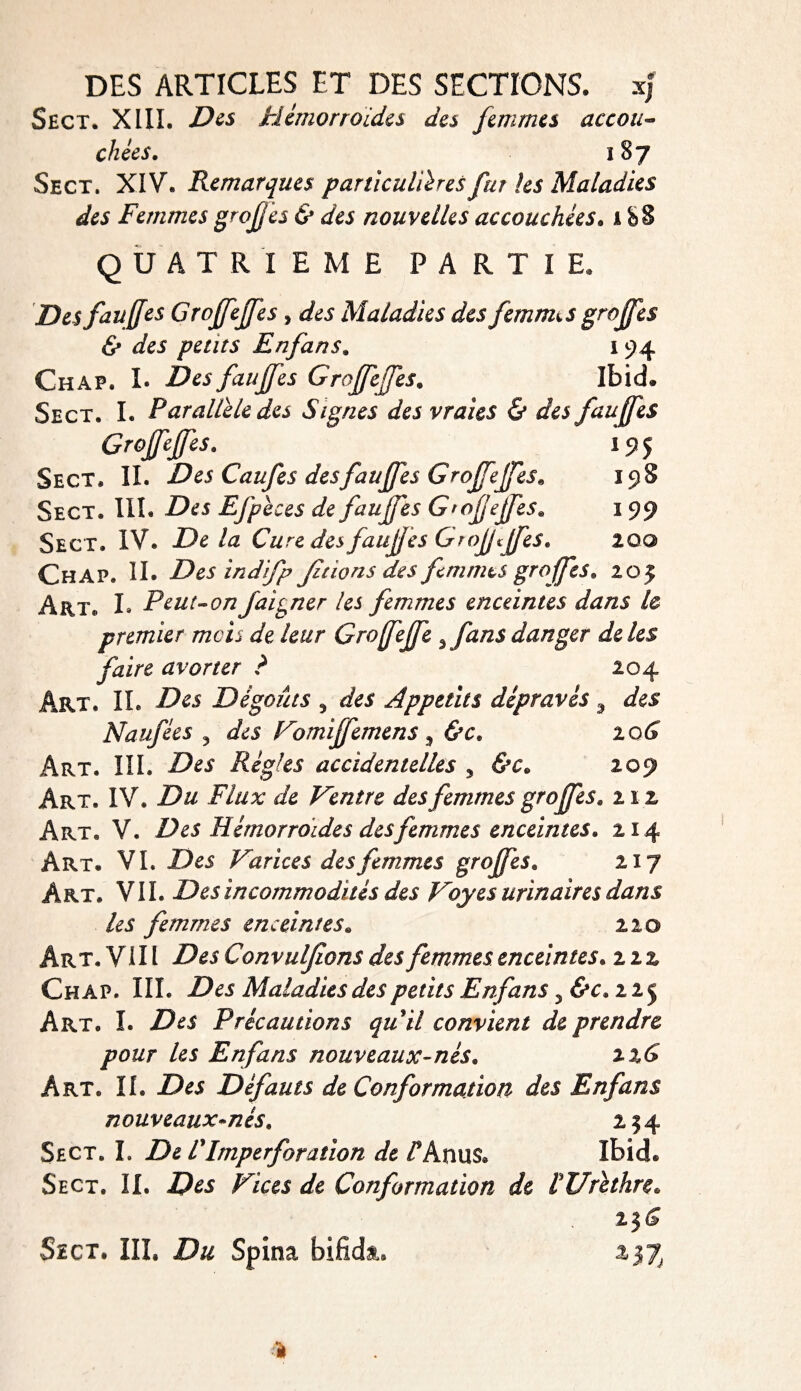 DES ARTICLES ET DES SECTIONS. xj
SECT. XIII. Des Hémorroïdes des femmes accou-
chées. 187
SECT. XIV. Remarques particulières ſur les Maladies
des Femmes groſſes & des nouvelles accouchées. 188
QUATRIEME PARTIE.
Des fauſſes Groſſeſſes, des Maladies des femmes groſſes
& des petits Enfans. 194
CHAP. I. Des fauſſes Groſſeſſes. Ibid.
SECT. I. Parallèle des Signes des vraies & des fauſſes
Groſſeſſes. 195
SECT. II. Des Cauſes des fauſſes Groſſeſſes. 198
SECT. III. Des Eſpèces de fauſſes Groſſeſſes. 199
SECT. IV. De la Cure des fauſſes Groſſeſſes. 200
CHAP. II. Des indiſpoſitions des femmes groſſes. 203
ART. I. Peut-on ſaigner les femmes enceintes dans le
premier mois de leur Groſſeſſe, ſans danger de les
faire avorter ? 204
ART. II. Des Dégoûts, des Appetits dépravés, des
Nauſées, des Vomiſſemens, &c. 206
ART. III. Des Règles accidentelles, &c. 209
ART. IV. Du Flux de Ventre des femmes groſſes. 212
ART. V. Des Hémorroïdes des femmes enceintes. 214
ART. VI. Des Varices des femmes groſſes. 217
ART. VII. Des incommodités des Voyes urinaires dans
les femmes enceintes. 220
ART. VIII Des Convulſions des femmes enceintes. 222
CHAP. III. Des Maladies des petits Enfans, &c. 225
ART. I. Des Précautions qu'il convient de prendre
pour les Enfans nouveaux-nés. 226
ART. II. Des Défauts de Conformation des Enfans
nouveaux-nés. 234
SECT. I. De l'Imperforation de l'Anus. Ibid.
SECT. II. Des Vices de Conformation de l'Urèthre.
236
SECT. III. Du Spina bifida. 237